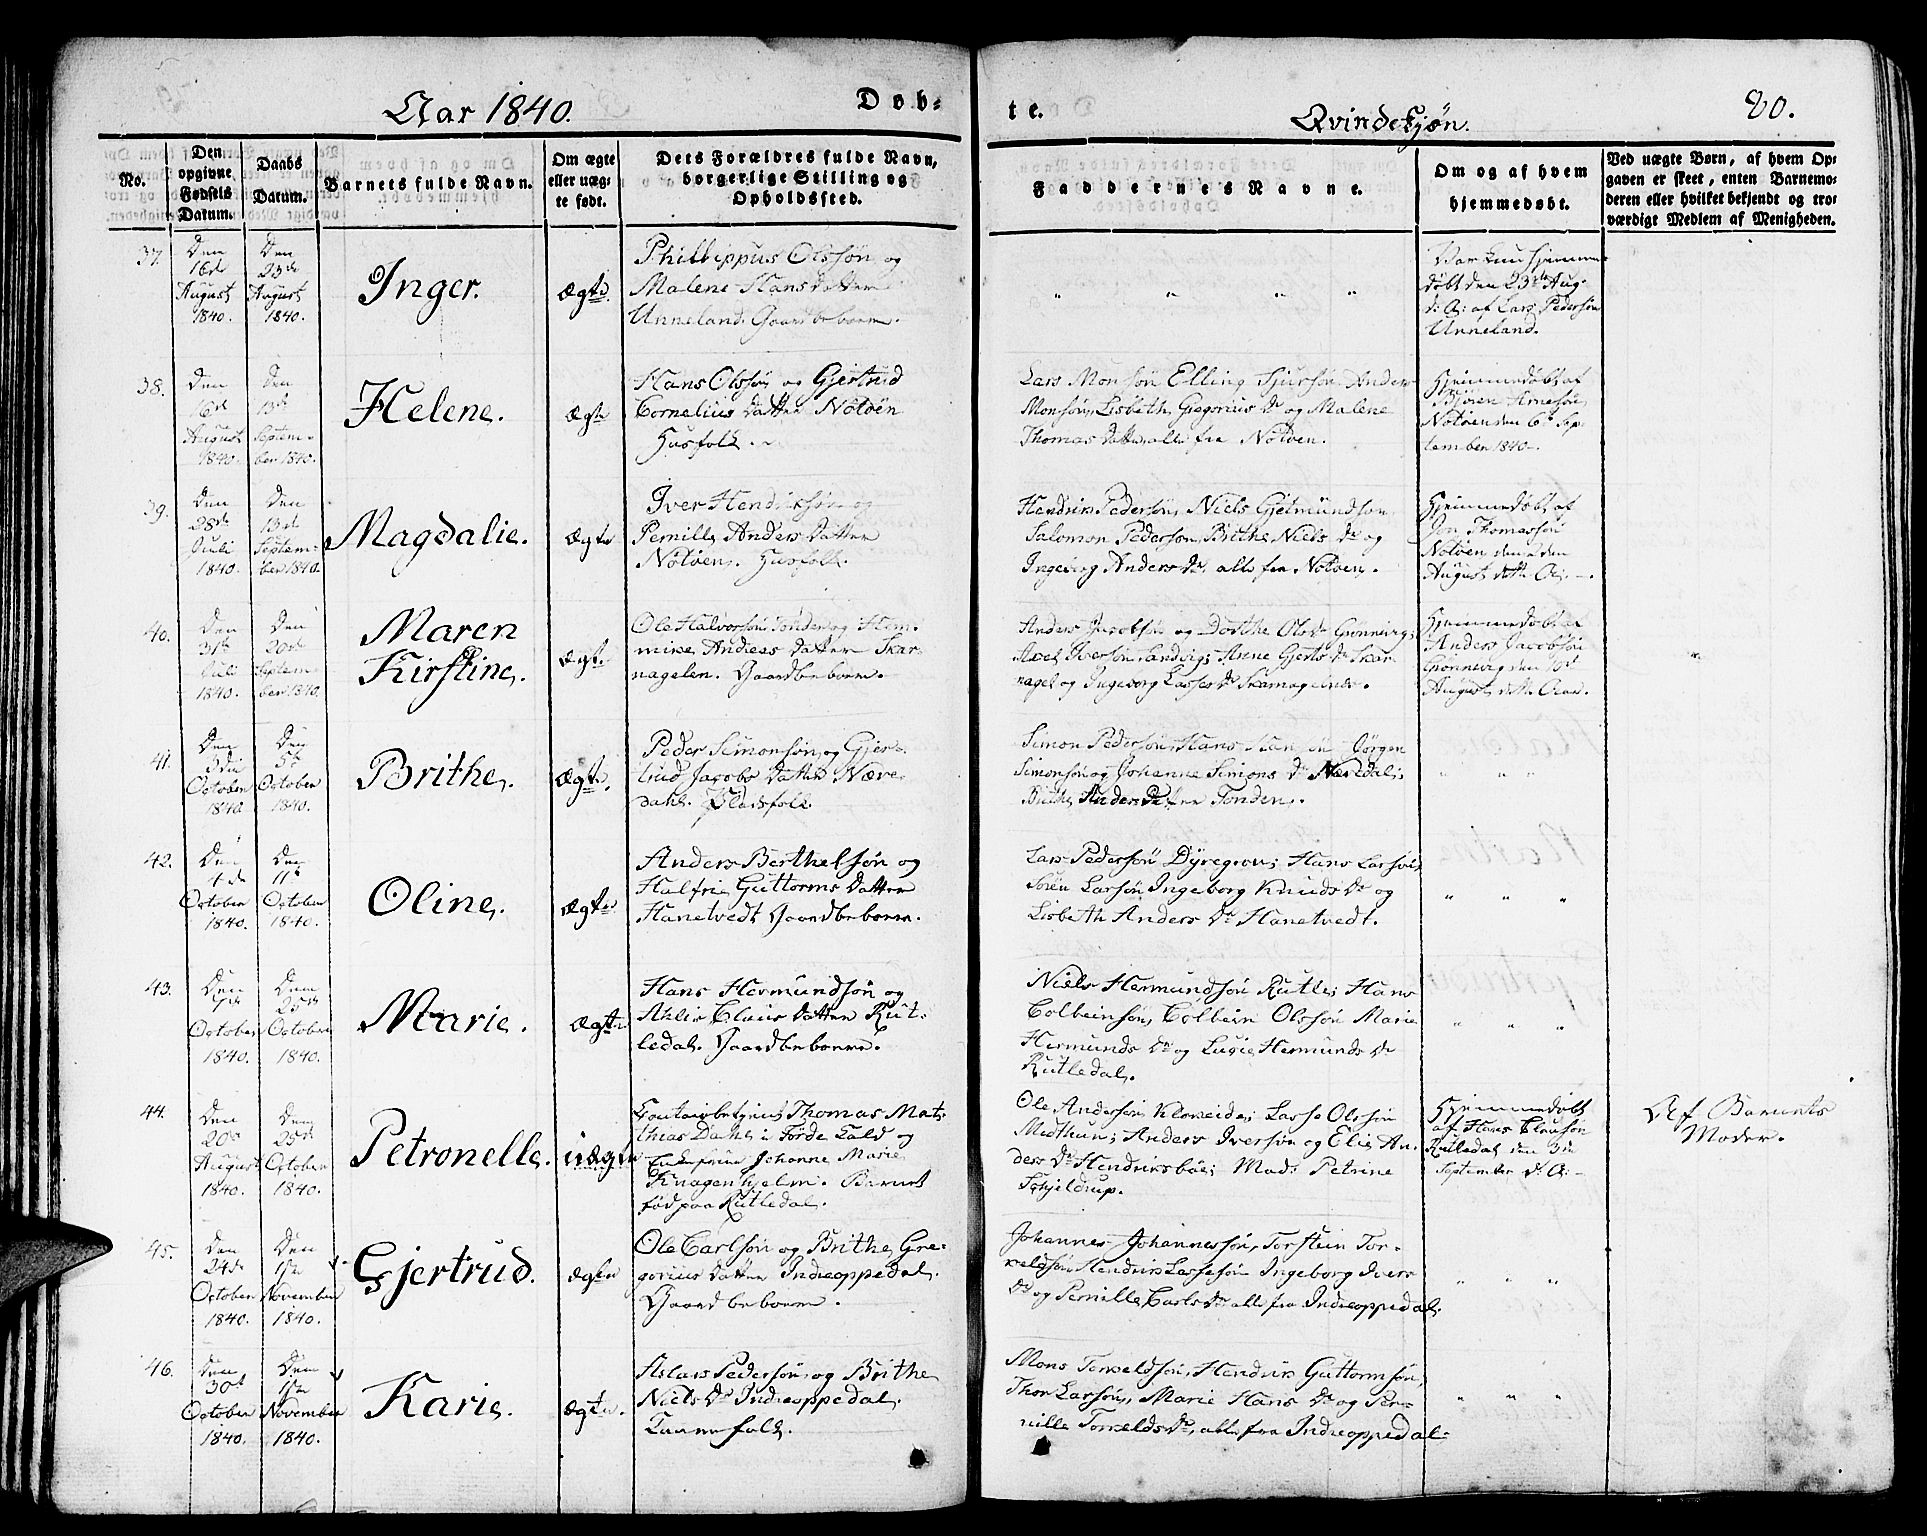 Aar 1840.
Dob-
te.
Qvindekjøn.
80.
No.
Den opgivne Fødsels Datum.
Daabs Datum.
Barnets fulde Navn.
Om ægte eller uægte født.
Dets Forældres fulde Navn, borgerlige Stilling og Opholdssted.
Faddernes Navne.
Om og af hvem hjemmedøbt.
Ved uægte Børn, af hvem Opgaven er skeet, enten Barnemoderen eller hvilket bekjendt og troværdigt Medlem af Menigheden.
37.
Den 16de August 1840.
Den 23de August 1840.
Inger.
Ægte
Phillippus Olssøn og
Malene Hansdatter
Unneland. Gaardbeboere.
" " " "
Var kun hjemme-
døbt den 23de Aug-
d: A: af Lars Pedersøn
Unneland.
38.
Den 16de August 1840.
Den 13de September 1840.
Helene.
Ægte
Hans Olssøn og Gjertrud
Cornelius Datter Notøen
Husfolk.
Lars Monsøn Elling Sjursøn Anders
Monsøn, Lisbeth Gregorius Dr og Malene
Thomas Datter alle fra Notøen.
Hjemmedøbt af
Bjøren Arnesøn
Notøen den 6te Sep-
tember 1840.
39.
Den 28de Juli 1840.
Den 13de September 1840.
Magdalie.
Ægte
Iver Hendriksøn og
Pernille Anders Datter
Notøen. Husfolk.
Hendrik Pedersøn, Niels Gjelmundsøn
Salomon Pedersøn, Brithe Niels Dr og
Ingeborg Anders Dr. alle fra Notøen.
Hjemmedøbt af
Jon Thomassøn
Notøen den
August dette Aar.
40.
Den 31te Juli 1840.
Den 20de September 1840.
Maren
Kirstine.
Ægte
Ole Halvorsøn Tonder og Hem-
mine Andreas Datter Skar-
nagelen. Gaardbeboere.
Anders Jacobsøn og Dorthe Ols Dr Grønnevig;
Axel Iversøn Sandvig; Anne Gjerts Dr Skar-
nagel og Ingeborg Lasses Dr Skarnagelen.
Hjemmedøbt af
Anders Jacobsøn
Grønnevig den
August dette Aar.
41.
Den 3die October 1840
Den 5te October 1840.
Brithe.
Ægte.
Peder Simonsøn og Gjer-
trud Jacobs Datter Nære-
dahl. Pladsfolk.
Simon Pedersøn, Hans Jørgen
Simonsøn og Johanne Simons Dr Næredal;
Brithe Anders Datter Tonden.
" " "
42.
Den 4de October 1840.
Den 11te October 1840.
Oline.
Ægte
Anders Berthelsøn og
Halfrie Guttorms Datter
Hanetvedt Gaardbeboere.
Lars Pedersøn Dyregrov; Hans Larsøn,
Søren Larsøn Ingeborg Knuds Dr og
Lisbeth Anders Dr Hanetvedt.
" " "
43.
Den 7de October 1840.
Den 25de October 1840.
Marie.
Ægte
Hans Hermundsøn og
Ahlis Claus Datter Rut-
ledal. Gaardbeboere.
Niels Hermundsøn Rutle; Hans
Colbeinsøn, Colbein Olssøn Marie
Hermunds Dr og Lucie Hermunds Dr
Rutledal.
" " "
44.
Den 20de August 1840.
Den 25de October 1840.
Petronelle.
Uægte
Thomas Mat-
thias Dahl i Førde Eald og
Enkefrue Johanne Marie
Knagenhjelm. Barnet
fød paa Rutledal.
Ole Andersøn Kloveide; Lasse Olssøn
Midthun; Anders Iversøn og Elie An-
ders Dr Hendriksbøe; Mad. Petrine
Schjeldrup.
Hjemmedøbt
af Hans Claussøn
Rutledal den 3die
September d: A:
Af Barnets
Moder.
45.
Den 24de October 1840.
Den 1ste November 1840.
Gjertrud.
Ægte
Ole Carlsøn og Brithe Gre-
gorius Datter Indreoppedal.
Gaardbeboere.
Johannes Johannessøn, Torstein Tor-
keldsøn Hendrik Lassesøn Ingeborg Ivers
Dr og Pernille Carls Dr alle fra Indreoppedal.
" " "
46.
Den 30te October 1840.
Den 1ste November 1840.
Karie.
Ægte.
Aslak Pedersøn og Brithe
Niels Dr Indreoppedal.
Mons Torkeldsøn, Hendrik Guttormsøn,
Thor Larsøn, Marie Hans Dr og Per-
nille Torkelds Dr, alle fra Indreoppedal
" " "